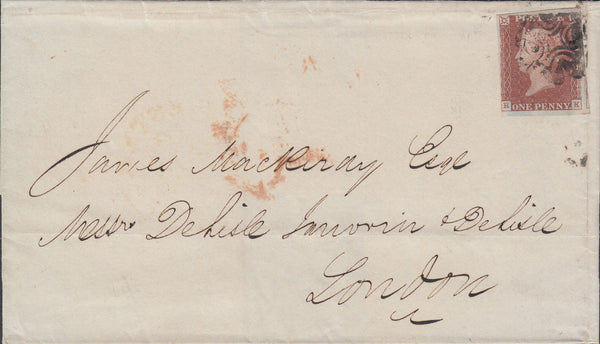 ONE PENNY
James Mackeray Esqe
Messrs DeLisle Janvrin & DeLisle
London